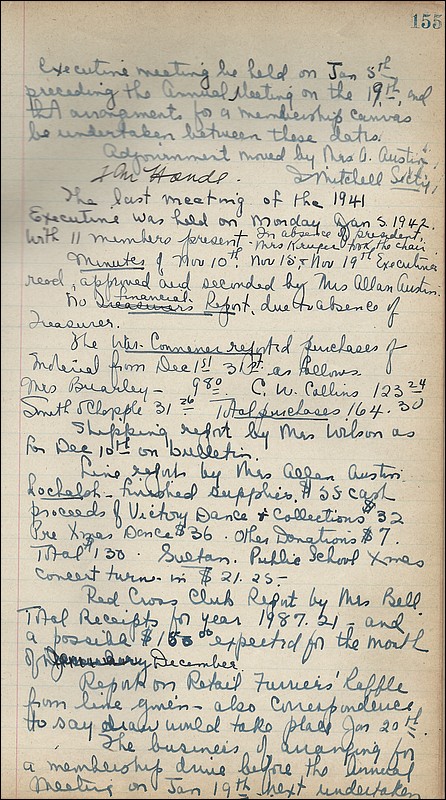 155
Executive meeting be held on Jan 5th
preceding the Annual Meeting on the 19th, and
that arrangements for a membership canvas
be undertaken between these dates.
Adjournment moved by Mrs A. Austin.
J Mitchell Sect'y
The last meeting of the 1941
Executive was held on Monday Jan 5. 1942.
With 11 members present - In absence of president,
Mrs Kruger took the chair.
Minutes of Nov 10th, Nov 15, & Nov 19th Executive
read, approved and seconded by Mrs Allan Austin.
No Treasurers Financial Report, due to absence of
Treasurer.
The War Convener reported purchases of
Material from Dec 1st 31st as follows
Mrs Brearley - 9 80 C. W. Collins 123 24
Smith & Chapple 31 26 Total purchases 164.30
Shipping report by Mrs Wilson as
for Dec 10th on bulletin.
Line reports by Mrs Allan Austin
Rochaloh - Finished supplies, $35 cash
proceeds of Victory Dance & Collections $32
Pre Xmas Dance $36. Other Donations $7.
Total $130. Sultan. Public School Xmas
concert turns in $21.25 -
Red Cross Club Report by Mrs Bell
Total Receipts for year 1987.21 - and
a possible $150 00 expected for the month
of January December
Report on Retail Furriers' Raffle
from line given - also correspondence
to say draw would take place Jan 20th.
The business of arranging for
a membership drive before the Annual
Meeting on Jan 19th next undertaken